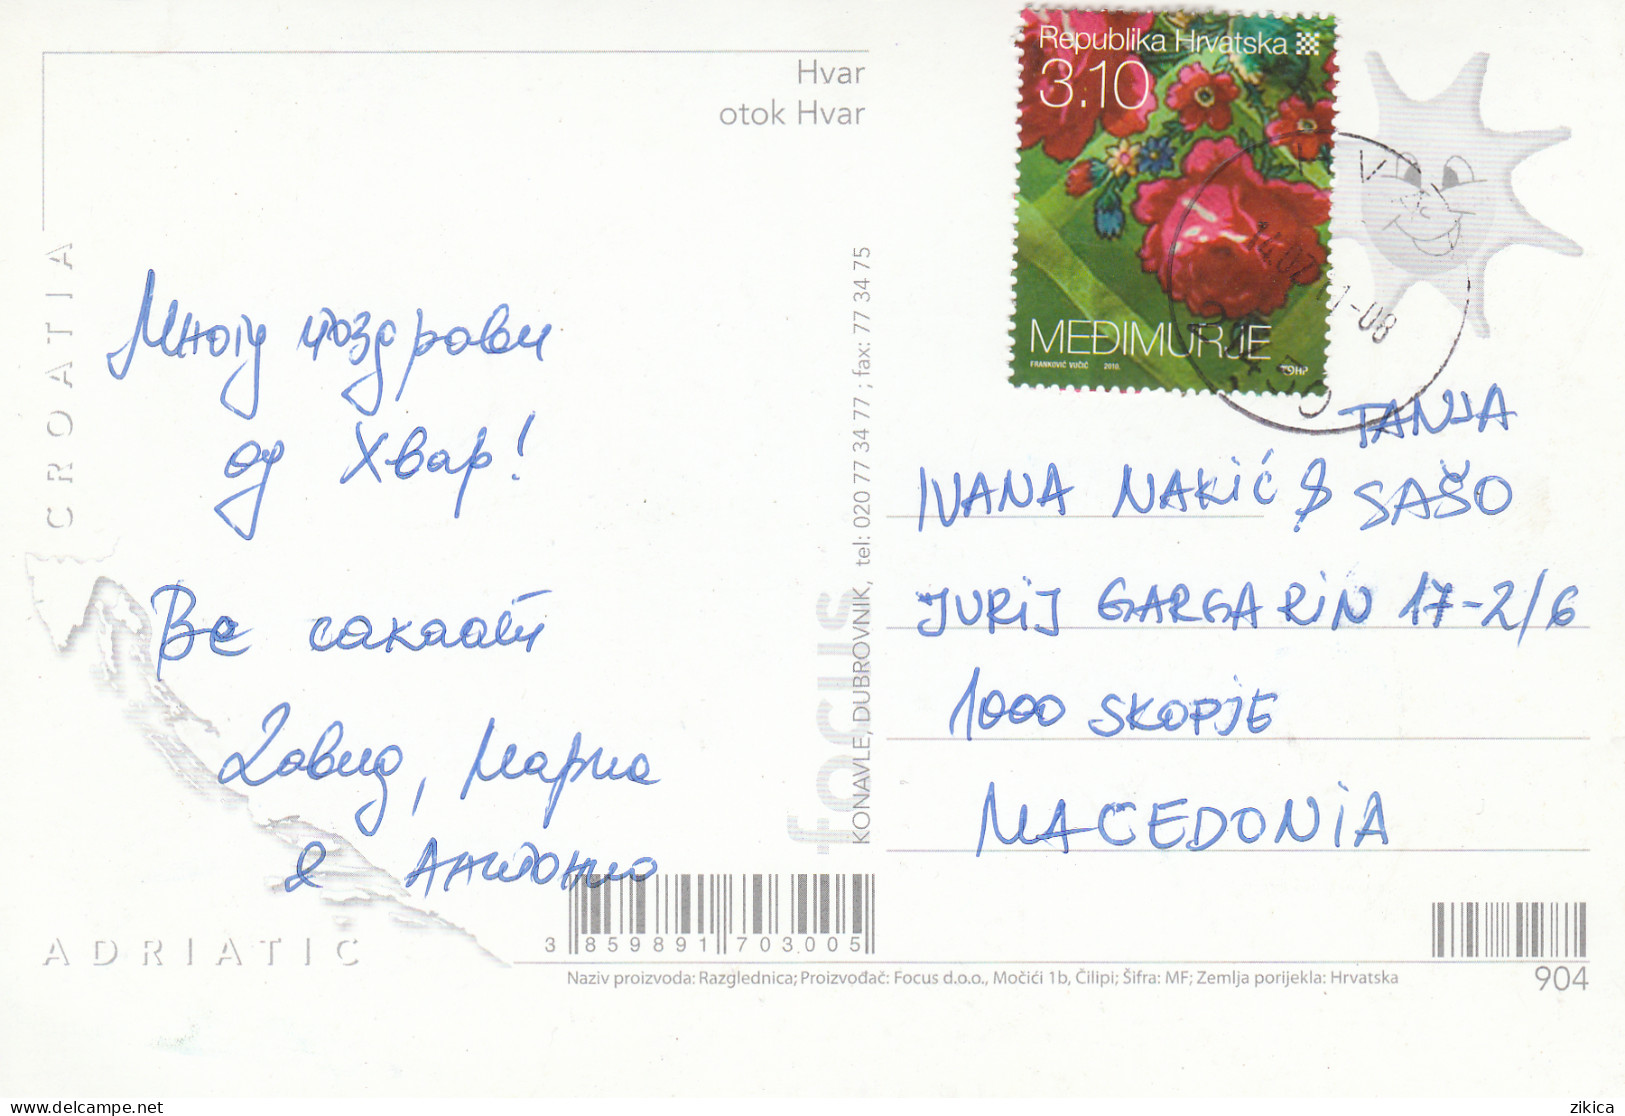 Hvar
otok Hvar
CROATIA
Многу поздрави
од Хвар!
Ве сакаат
Давид, Марија
и Антонио
ADRIATIC
focus
KONAVLE, DUBROVNIK, tel: 020 77 34 77 ; fax: 77 34 75
3 859891 703005
Naziv proizvoda: Razglednica; Proizvođač: Focus d.o.o., Močići 1b, Čilipi; Šifra: MF; Zemlja porijekla: Hrvatska
904
Republika Hrvatska
3.10
MEĐIMURJE
FRANKOVIĆ VUČIĆ 2010.
TANJA
IVANA NAKIĆ & SAŠO
JURIJ GARGARIN 17-2/6
1000 SKOPJE
MACEDONIA
zikica